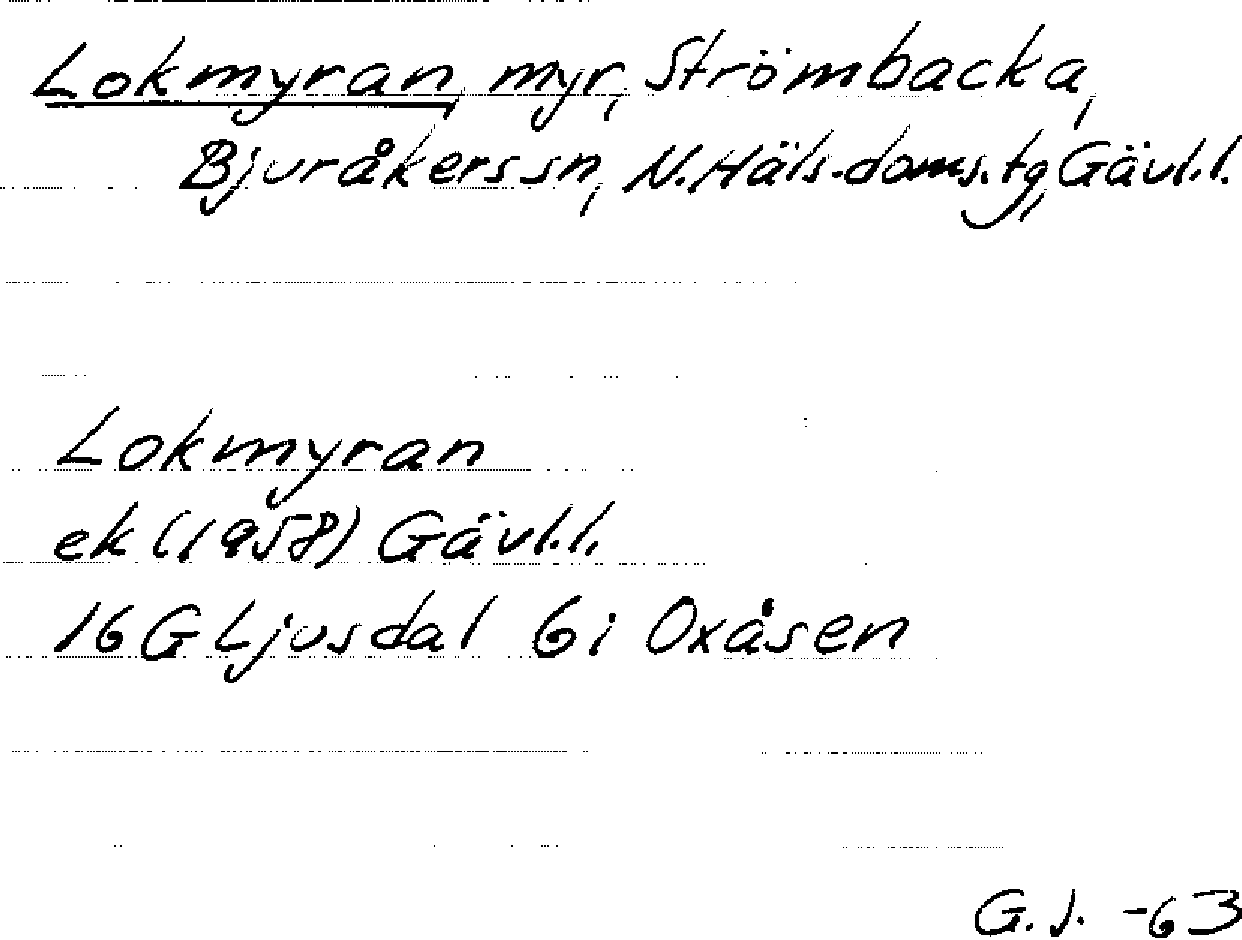 Lokmyran, myr, Strömbacka,
Bjuråkers sn, N. Häls. doms. tg, Gävl.l.
Lokmyran
ek (1958) Gävl.l.
16 G Ljusdal 6 i Oxåsen
G. J. -63